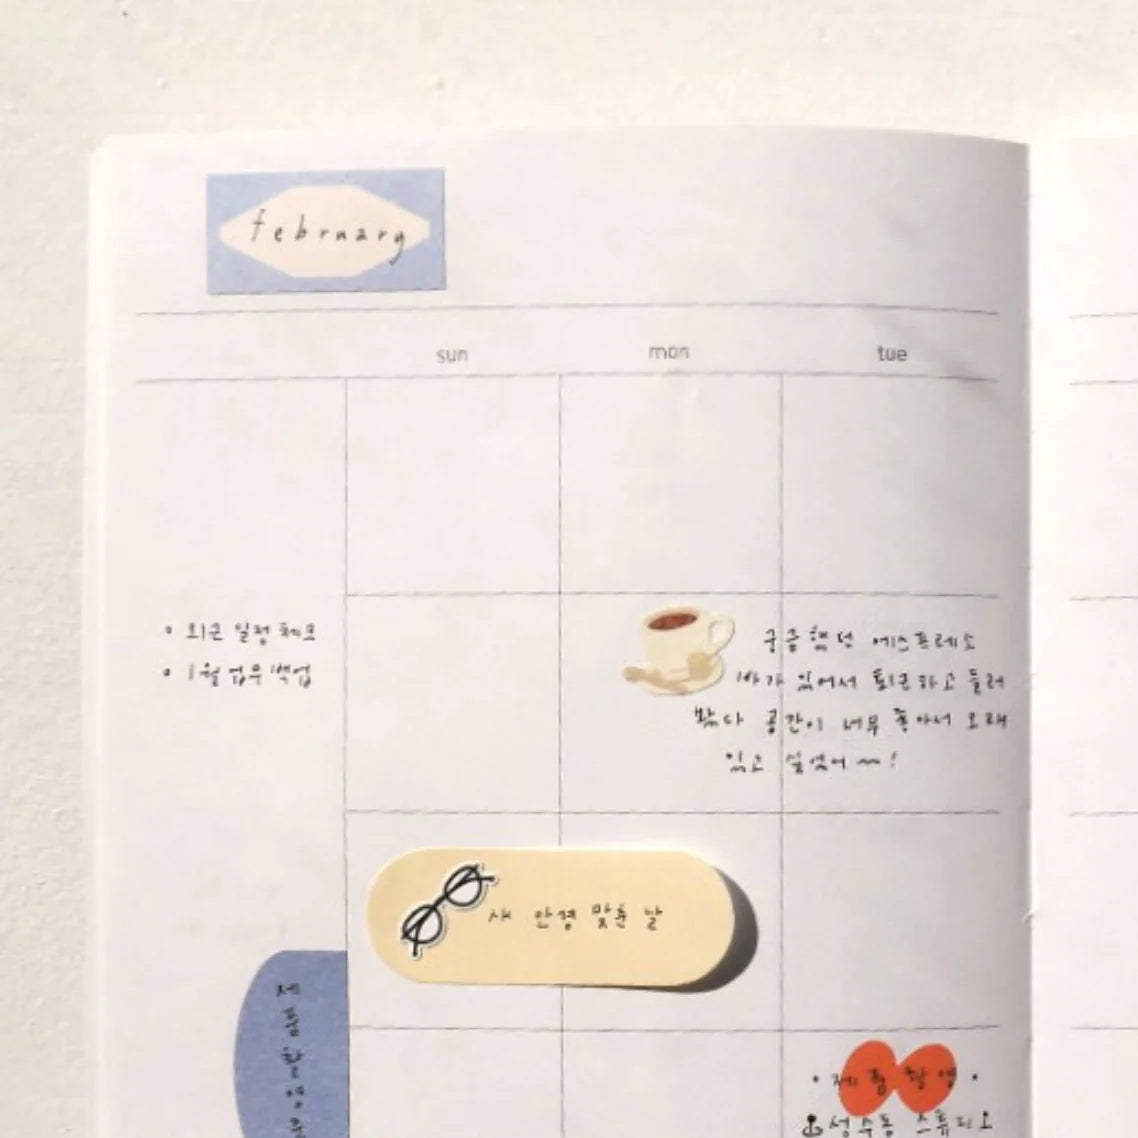 february
sun mon tue
• 외근 일정 체크
• 1월 업무 백업
궁금했던 에스프레소
바가 있어서 퇴근하고 들러
봤다 공간이 너무 좋아서 오래
있고 싶었어~!
새 안경 맞춘 날
제품촬영준
• 제품 촬영 •
성수동 스튜디오